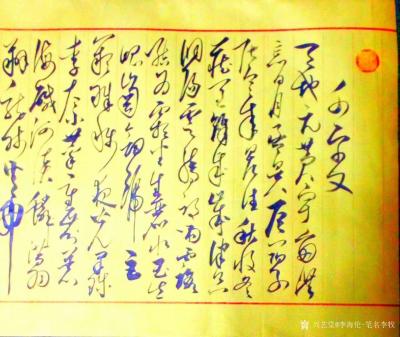 千字文
天地玄黄宇宙洪
荒日月盈昃辰宿列
张寒来暑往秋收冬
藏闰余成岁律吕
调阳云腾致雨露
结为霜金生丽水玉出
昆冈剑号巨
阙珠称夜光果珍
李柰菜重芥姜
海咸河淡鳞潜羽
翔龙师火帝
兴艺堂@李海伦-笔名李牧